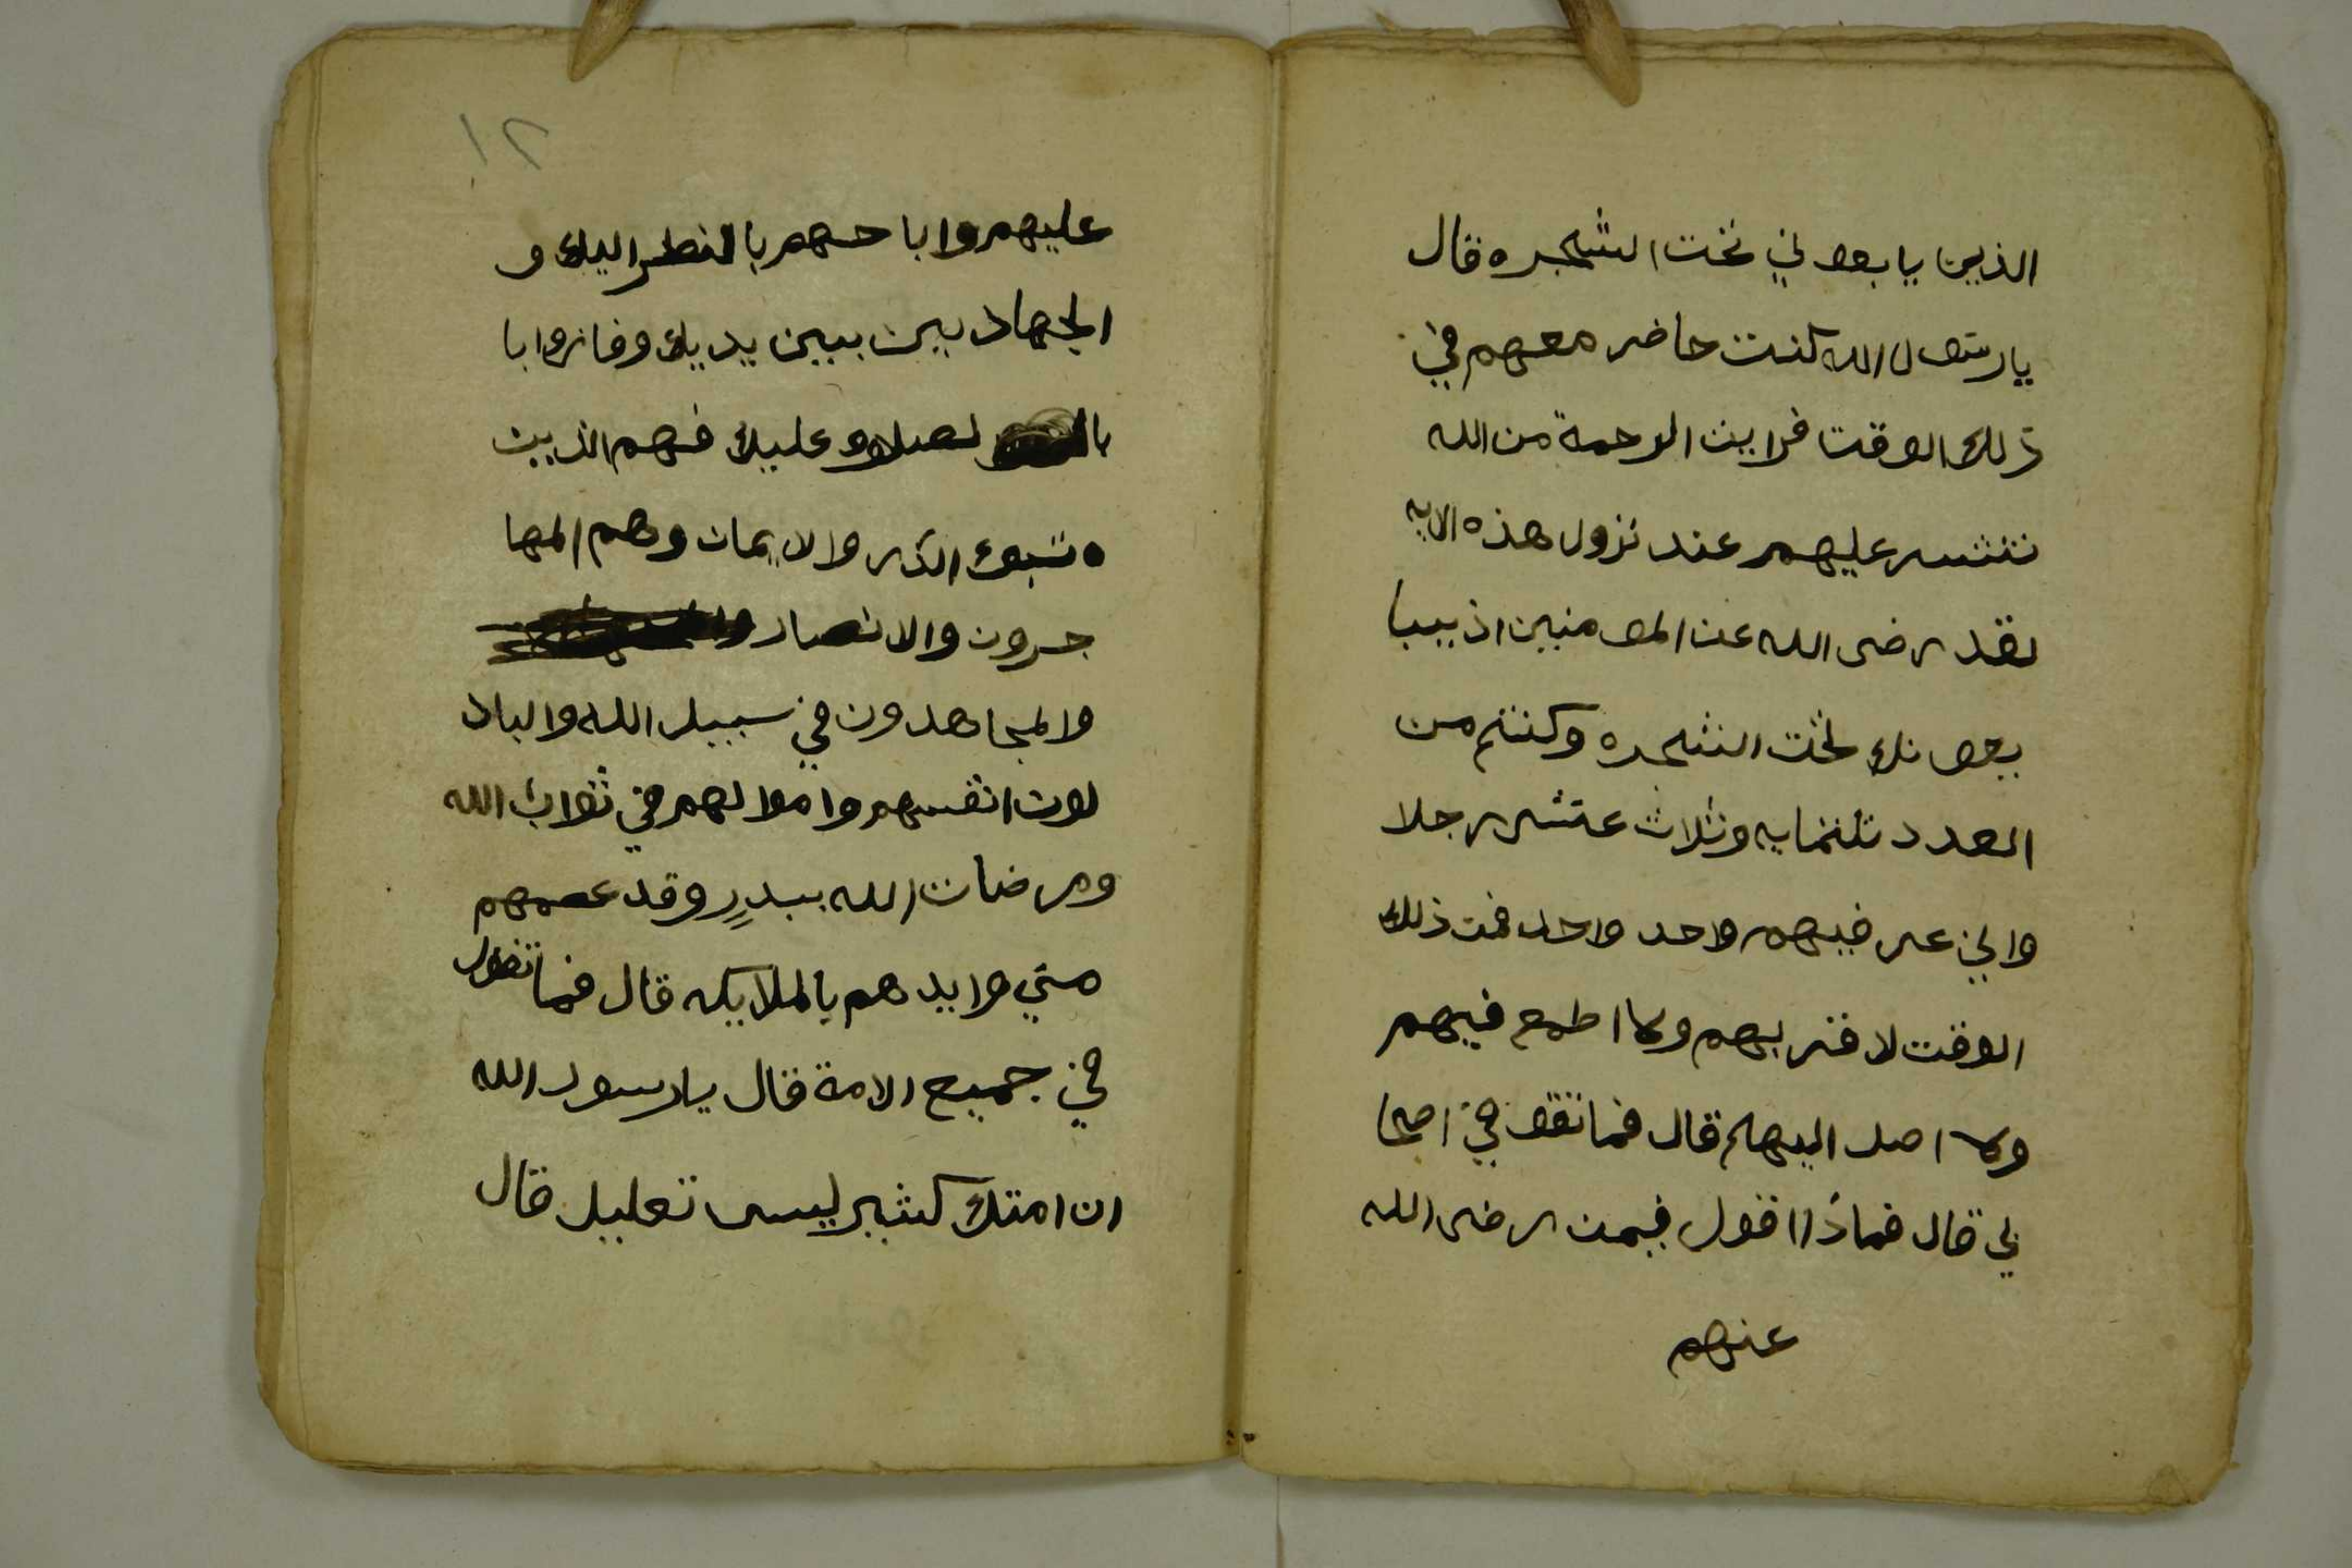 الذين يا بعوني تحت الشجره قال
يا رسول الله كنت حاضر معهم في
ذلك الوقت فرايت الرحمة من الله
تنتشر عليهم عند نزول هذه الايه
لقد رضى الله عن المومنين اذ يبا
يعونك تحت الشجره وكنتم من
العدد ثلثمايه وثلاث عشر رجلا
واني فيهم واحد واحد فمن ذلك
الوقت لا قربهم ولا اطمع فيهم
ولا اصل اليهم قال فما تقو في اصحا
بي قال فماذا اقول فيمن رضى الله
عنهم
١٢
عليهم وابا حهم بالنظر اليك و
الجهاد بين يبين يديك وفازوا با
با لصلاه عليك فهم الذين
تبوء الدار والايمان وهم المها
جرون والانصار
والمجاهدون في سبيل الله والباذ
لون انفسهم واموالهم في ثواب الله
ومرضات الله ببدر وقد عصمهم
مني وايدهم بالملايكه قال فما تقول
في جميع الامة قال يا رسول الله
ان امتك كثير ليس تعليل قال